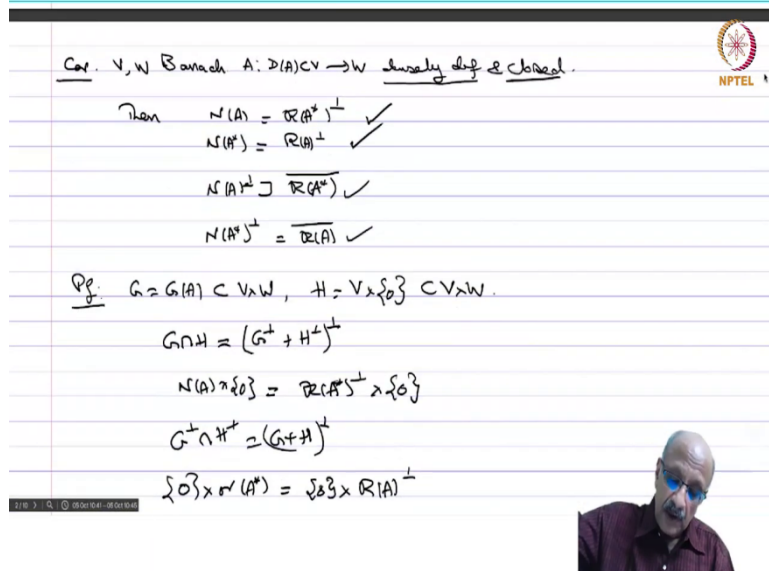 NPTEL
Cor. V, W Banach A: D(A) ⊂ V → W densely def & closed.
Then N(A) = R(A*)^⊥ ✓
N(A*) = R(A)^⊥ ✓
N(A)^⊥ ⊃ \overline{R(A*)} ✓
N(A*)^⊥ = \overline{R(A)} ✓
Pf: G = G(A) ⊂ V×W, H = V×{0} ⊂ V×W.
G∩H = (G^⊥ + H^⊥)^⊥
N(A)×{0} = R(A*)^⊥×{0}
G^⊥∩H^⊥ = (G+H)^⊥
{0}×N(A*) = {0}×R(A)^⊥
2/10